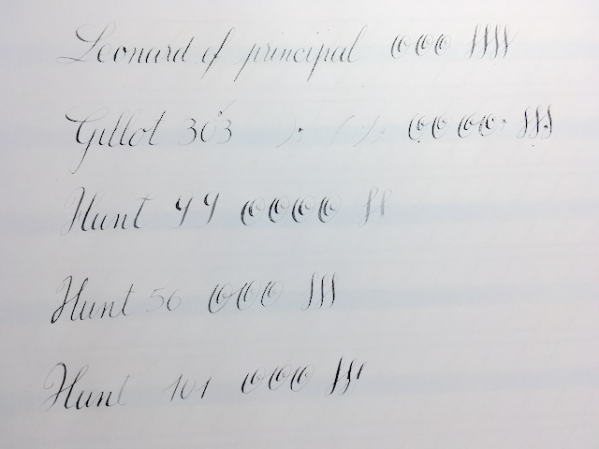 Leonard ef principal
Gillot 303
Hunt 99
Hunt 56
Hunt 101